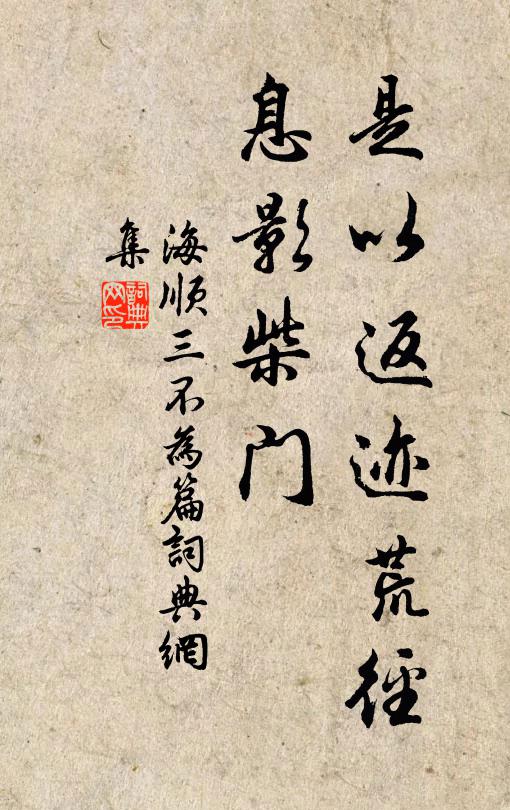 是以返迹荒徑
息影柴门
海順三不為篇詞典網
集
詞典網印